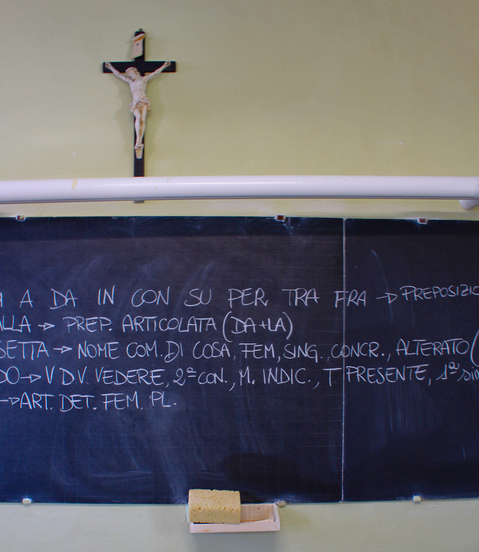 A DA IN CON SU PER TRA FRA → PREPOSIZIO
ALLA → PREP. ARTICOLATA (DA+LA)
SETTA → NOME COM. DI COSA, FEM, SING., CONCR., ALTERATO (
DO → V D.V. VEDERE, 2ª CON., M. INDIC., T PRESENTE, 1ª sin
→ ART. DET. FEM. PL.